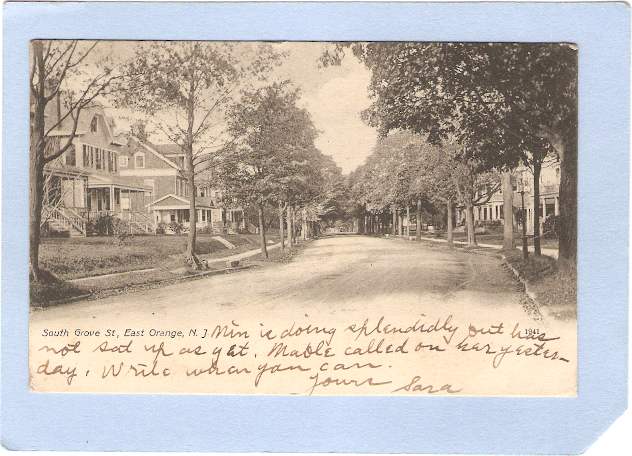 South Grove St, East Orange, N. J. Min is doing splendidly but has 1941
not sat up as yet. Mable called on her yester-
day. Write when you can.
Yours Sara